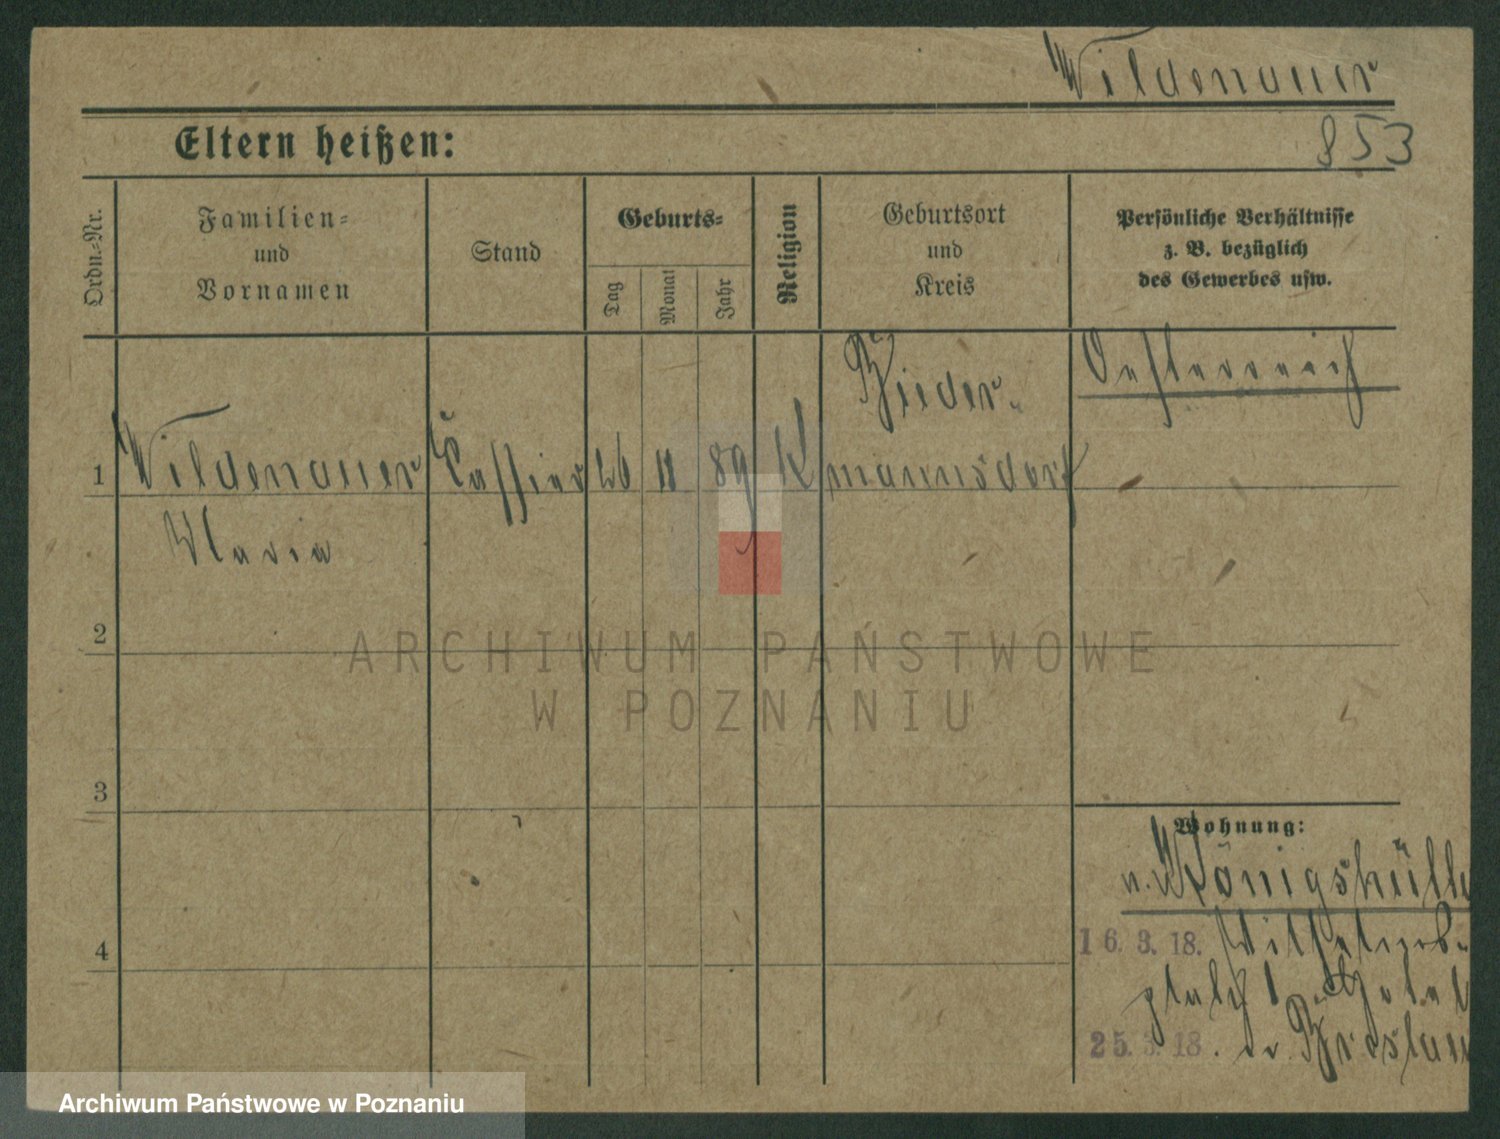 Wildenauer
853
Eltern heißen:
Ordn.-Nr.
Familien-
und
Vornamen
Stand
Geburts-
Tag
Monat
Jahr
Religion
Geburtsort
und
Kreis
Persönliche Verhältnisse
z. B. bezüglich
des Gewerbes usw.
Bieder-
Oesterreich
1
Wildenauer
26
11
89
K
mannsdorf
Maria
2
3
4
Wohnung:
v. Königshütte
16. 3. 18. Wilhelms-
platz 1 Hotel
25. 3. 18. Breslau
ARCHIWUM PAŃSTWOWE
W POZNANIU
Archiwum Państwowe w Poznaniu